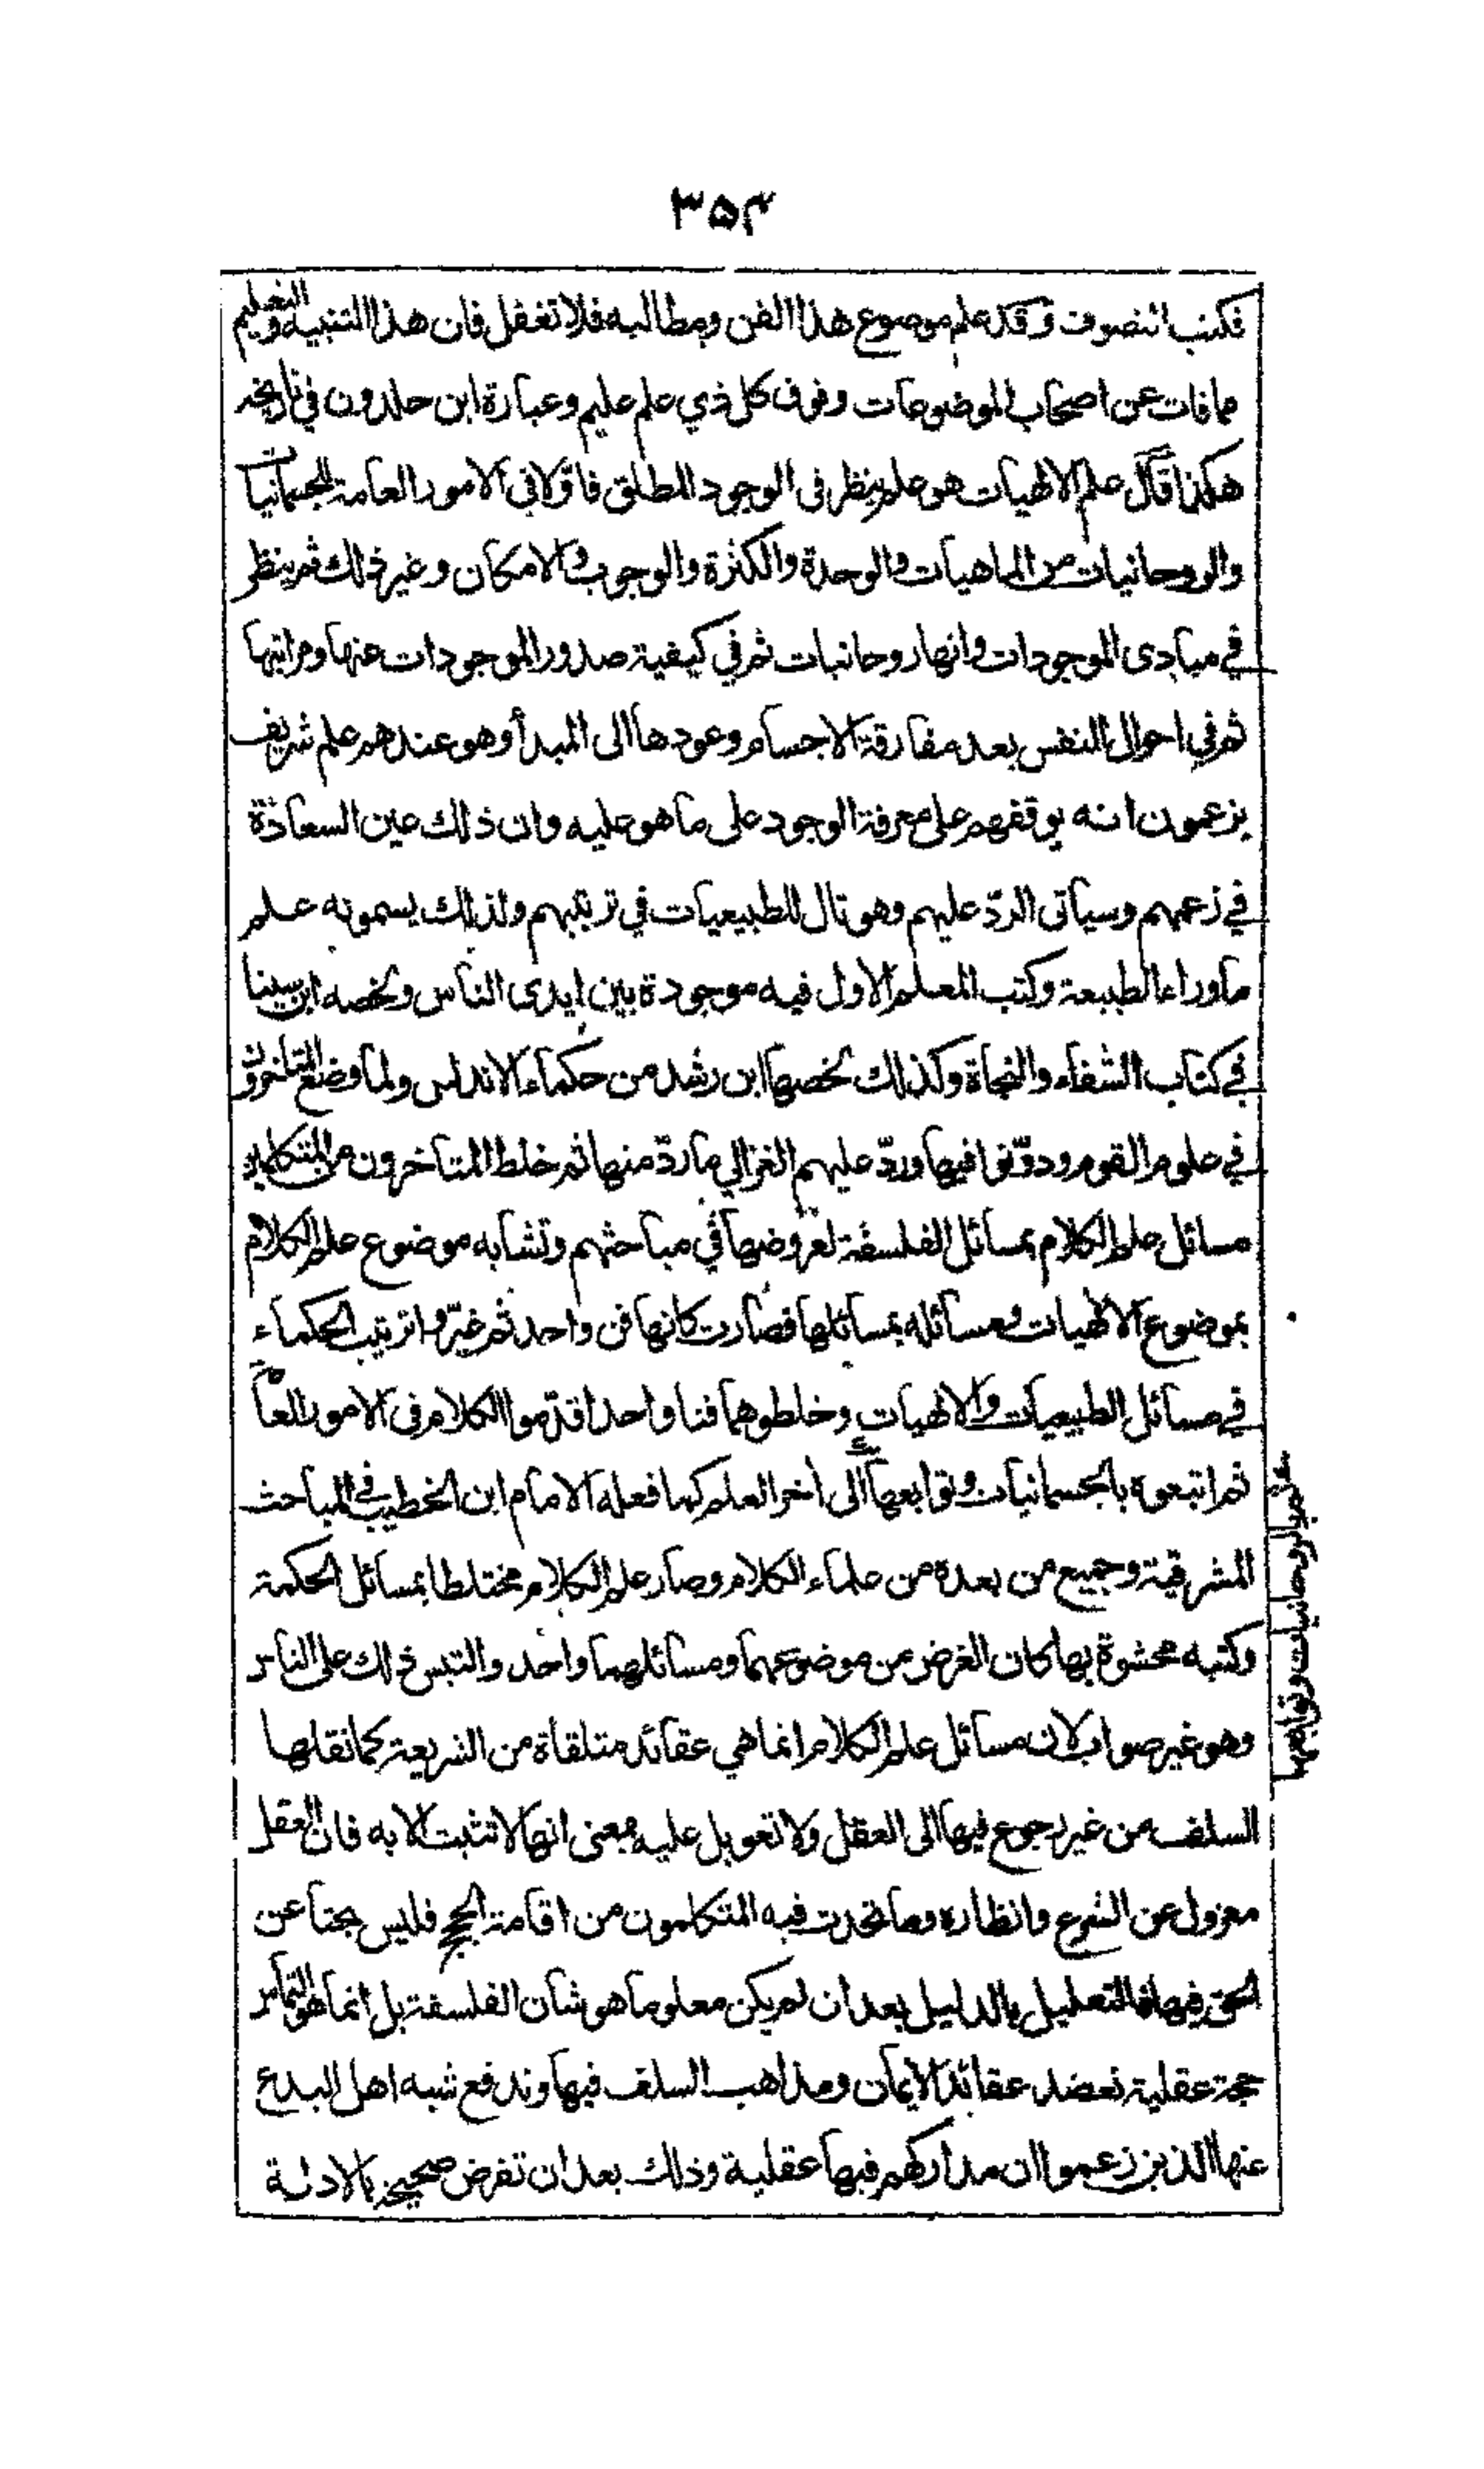 ۳۵۴
فكتب التصوف وقد علم موضوع هذا الفن ومطالبه فلا تغفل فان هذا التنبيه والتعليم
مما فات عن اصحاب الموضوعات وفوق كل ذي علم عليم وعبارة ابن خلدون في تاريخه
هكذا قال علم الالهيات هو علم ينظر فى الوجود المطلق فاولا فى الامور العامة للجسمانيات
والروحانيات من الماهيات والوحدة والكثرة والوجوب والامكان وغير ذلك ثم ينظر
في مبادى الموجودات وانها روحانيات ثم في كيفية صدور الموجودات عنها ومراتبها
ثم في احوال النفس بعد مفارقة الاجسام وعودها الى المبدأ وهو عندهم علم شريف
يزعمون انه يوقفهم على معرفة الوجود على ما هو عليه وان ذلك عين السعادة
في زعمهم وسيأتى الردّ عليهم وهو تال للطبيعيات في ترتيبهم ولذلك يسمونه علم
ما وراء الطبيعة وكتب المعلم الاول فيه موجودة بين ايدى الناس ولخصه ابن سينا
في كتاب الشفاء والنجاة وكذلك لخصها ابن رشد من حكماء الاندلس ولما وضع المتاخرون
في علوم القوم ودوّنوا فيها وردّ عليهم الغزالي ما ردّ منها ثم خلط المتاخرون من المتكلمين
مسائل علم الكلام بمسائل الفلسفة لعروضها في مباحثهم وتشابه موضوع علم الكلام
بموضوع الالهيات ومسائله بمسائلها فصارت كانها فن واحد ثم غيّروا ترتيب الحكماء
في مسائل الطبيعيات والالهيات وخلطوهما فنا واحدا قدّموا الكلام فى الامور العامة
ثم اتبعوه بالجسمانيات وتوابعها الى اخر العلم كما فعله الامام ابن الخطيب في المباحث
المشرقية وجميع من بعده من علماء الكلام وصار علم الكلام مختلطا بمسائل الحكمة
وكتبه محشوة بها كان الغرض من موضوعهما ومسائلهما واحد والتبس ذلك على الناس
وهو غير صواب لان مسائل علم الكلام انما هي عقائد متلقاة من الشريعة كما نقلها
السلف من غير رجوع فيها الى العقل ولا تعويل عليه بمعنى انها لا تثبت الا به فان العقل
معزول عن الشرع وانظاره وما تحدث فيه المتكلمون من اقامة الحجج فليس بحثا عن
الحق فيها فالتعليل بالدليل بعد ان لم يكن معلوما هو شأن الفلسفة بل انما هو التماس
حجة عقلية تعضد عقائد الايمان ومذاهب السلف فيها وتدفع شبه اهل البدع
عنها الذين زعموا ان مداركهم فيها عقلية وذلك بعد ان تفرض صحيحة بالادلة
ثم بالروحانيات وتوابعها